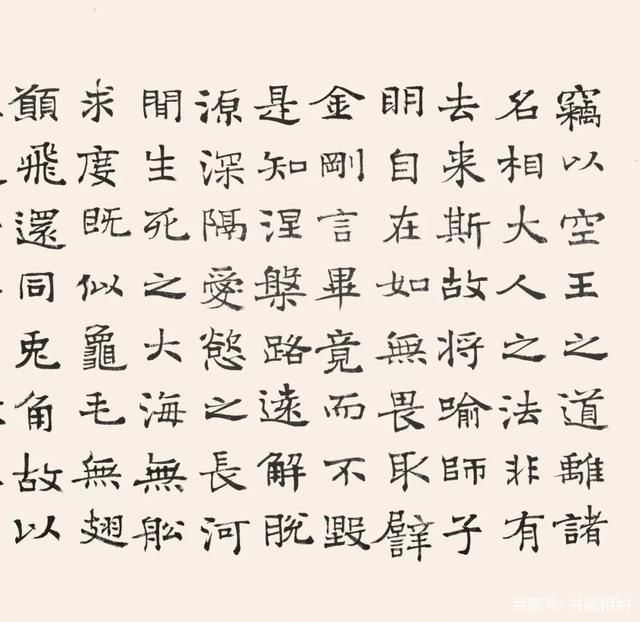 竊以空王之道離諸
名相大人之法非有
去来斯故将喻師子
明自在如無畏取譬
金剛言畢竟而不毀
是知涅槃路遠解脫
源深隔愛慾之長河
間生死之大海無舩
求度既似龜毛無翅
願飛還同兎角故以
百家号/书画相约